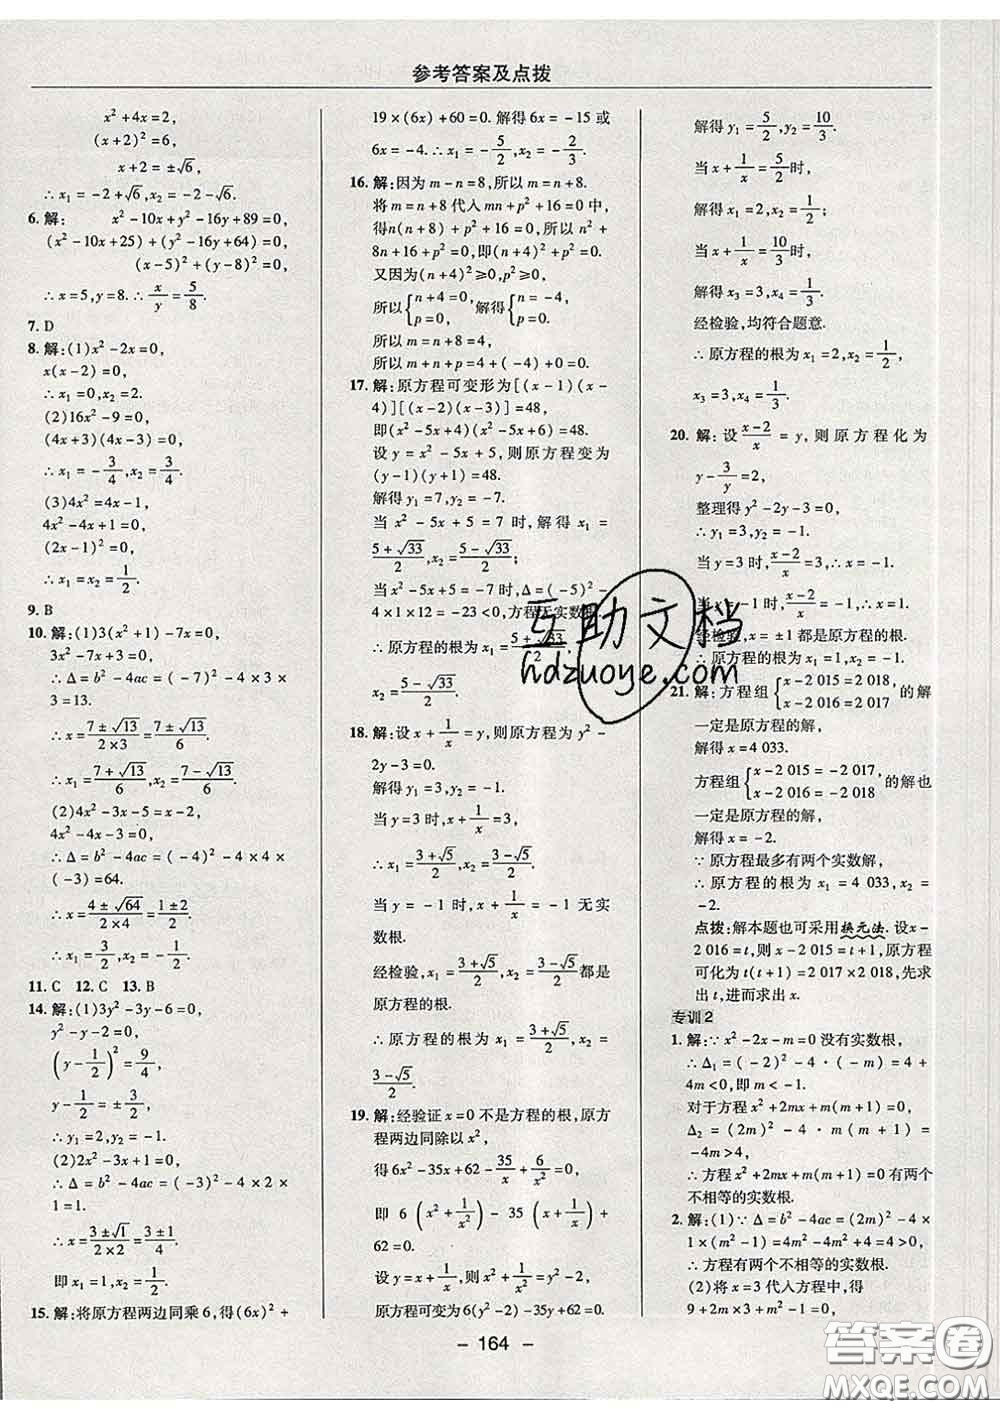 参考答案及点拨
x²+4x=2,
(x+2)²=6,
x+2=±√6,
∴x₁=-2+√6,x₂=-2-√6.
6.解: x²-10x+y²-16y+89=0,
(x²-10x+25)+(y²-16y+64)=0,
(x-5)²+(y-8)²=0,
∴x=5,y=8.∴x/y=5/8.
7. D
8.解:(1)x²-2x=0,
x(x-2)=0,
∴x₁=0,x₂=2.
(2)16x²-9=0,
(4x+3)(4x-3)=0,
∴x₁=-3/4,x₂=3/4.
(3)4x²=4x-1,
4x²-4x+1=0,
(2x-1)²=0,
∴x₁=x₂=1/2.
9. B
10.解:(1)3(x²+1)-7x=0,
3x²-7x+3=0,
∴Δ=b²-4ac=(-7)²-4×3×
3=13.
∴x=(7±√13)/(2×3)=(7±√13)/6.
∴x₁=(7+√13)/6,x₂=(7-√13)/6.
(2)4x²-3x-5=x-2,
4x²-4x-3=0,
∴Δ=b²-4ac=(-4)²-4×4×
(-3)=64.
∴x=(4±√64)/(2×4)=(1±2)/2.
∴x₁=3/2,x₂=-1/2.
11. C 12. C 13. B
14.解:(1)3y²-3y-6=0,
y²-y-2=0,
(y-1/2)²=9/4,
y-1/2=±3/2,
∴y₁=2,y₂=-1.
(2)2x²-3x+1=0,
∴Δ=b²-4ac=(-3)²-4×2×
1=1.
∴x=(3±√1)/(2×2)=(3±1)/4.
即x₁=1,x₂=1/2.
15.解:将原方程两边同乘6,得(6x)²+
19×(6x)+60=0.解得6x=-15或
6x=-4.∴x₁=-5/2,x₂=-2/3.
16.解:因为m-n=8,所以m=n+8.
将m=n+8代入mn+p²+16=0中,
得n(n+8)+p²+16=0,所以n²+
8n+16+p²=0,即(n+4)²+p²=0.
又因为(n+4)²≥0,p²≥0,
所以{n+4=0, p=0, 解得{n=-4, p=0.
所以m=n+8=4,
所以m+n+p=4+(-4)+0=0.
17.解:原方程可变形为[(x-1)(x-
4)][(x-2)(x-3)]=48,
即(x²-5x+4)(x²-5x+6)=48.
设y=x²-5x+5,则原方程变为
(y-1)(y+1)=48.
解得y₁=7,y₂=-7.
当x²-5x+5=7时,解得x₁=
(5+√33)/2,x₂=(5-√33)/2;
当x²-5x+5=-7时,Δ=(-5)²-
4×1×12=-23<0,方程无实数根.
∴原方程的根为x₁=(5+√33)/2,
x₂=(5-√33)/2.
18.解:设x+1/x=y,则原方程为y²-
2y-3=0.
解得y₁=3,y₂=-1.
当y=3时,x+1/x=3,
∴x₁=(3+√5)/2,x₂=(3-√5)/2.
当y=-1时,x+1/x=-1无实
数根.
经检验,x₁=(3+√5)/2,x₂=(3-√5)/2都是
原方程的根.
∴原方程的根为x₁=(3+√5)/2,x₂=
(3-√5)/2.
19.解:经验证x=0不是方程的根,原方
程两边同除以x²,
得6x²-35x+62-35/x+6/x²=0,
即6(x²+1/x²)-35(x+1/x)+
62=0.
设y=x+1/x,则x²+1/x²=y²-2,
原方程可变为6(y²-2)-35y+62=0.
解得y₁=5/2,y₂=10/3.
当x+1/x=5/2时,
解得x₁=2,x₂=1/2;
当x+1/x=10/3时,
解得x₃=3,x₄=1/3.
经检验,均符合题意.
∴原方程的根为x₁=2,x₂=1/2,
x₃=3,x₄=1/3.
20.解:设(x-2)/x=y,则原方程化为
y-3/y=2,
整理得y²-2y-3=0,
∴y₁=3,y₂=-1.
当y=3时,(x-2)/x=3,∴x=-1.
当y=-1时,(x-2)/x=-1,∴x=1.
经检验,x=±1都是原方程的根.
∴原方程的根为x₁=1,x₂=-1.
21.解:方程组{x-2 015=2 018, x-2 016=2 017的解
一定是原方程的解,
解得x=4 033.
方程组{x-2 015=-2 017, x-2 016=-2 018的解也
一定是原方程的解,
解得x=-2.
∵原方程最多有两个实数解,
∴原方程的根为x₁=4 033,x₂=
-2.
点拨:解本题也可采用换元法.设x-
2 016=t,则x-2 015=t+1,原方程
可化为t(t+1)=2 017×2 018,先求
出t,进而求出x.
专训2
1.解:∵x²-2x-m=0没有实数根,
∴Δ₁=(-2)²-4·(-m)=4+
4m<0,即m<-1.
对于方程x²+2mx+m(m+1)=0,
Δ₂=(2m)²-4·m(m+1)=
-4m>4,
∴方程x²+2mx+m(m+1)=0有两个
不相等的实数根.
2.解:(1)∵Δ=b²-4ac=(2m)²-4×
1×(m²-1)=4m²-4m²+4=4>0,
∴方程有两个不相等的实数根.
(2)将x=3代入方程中,得
9+2m×3+m²-1=0,
- 164 -
互助文档
hdzuoye.com
答案圈
MXQE.COM